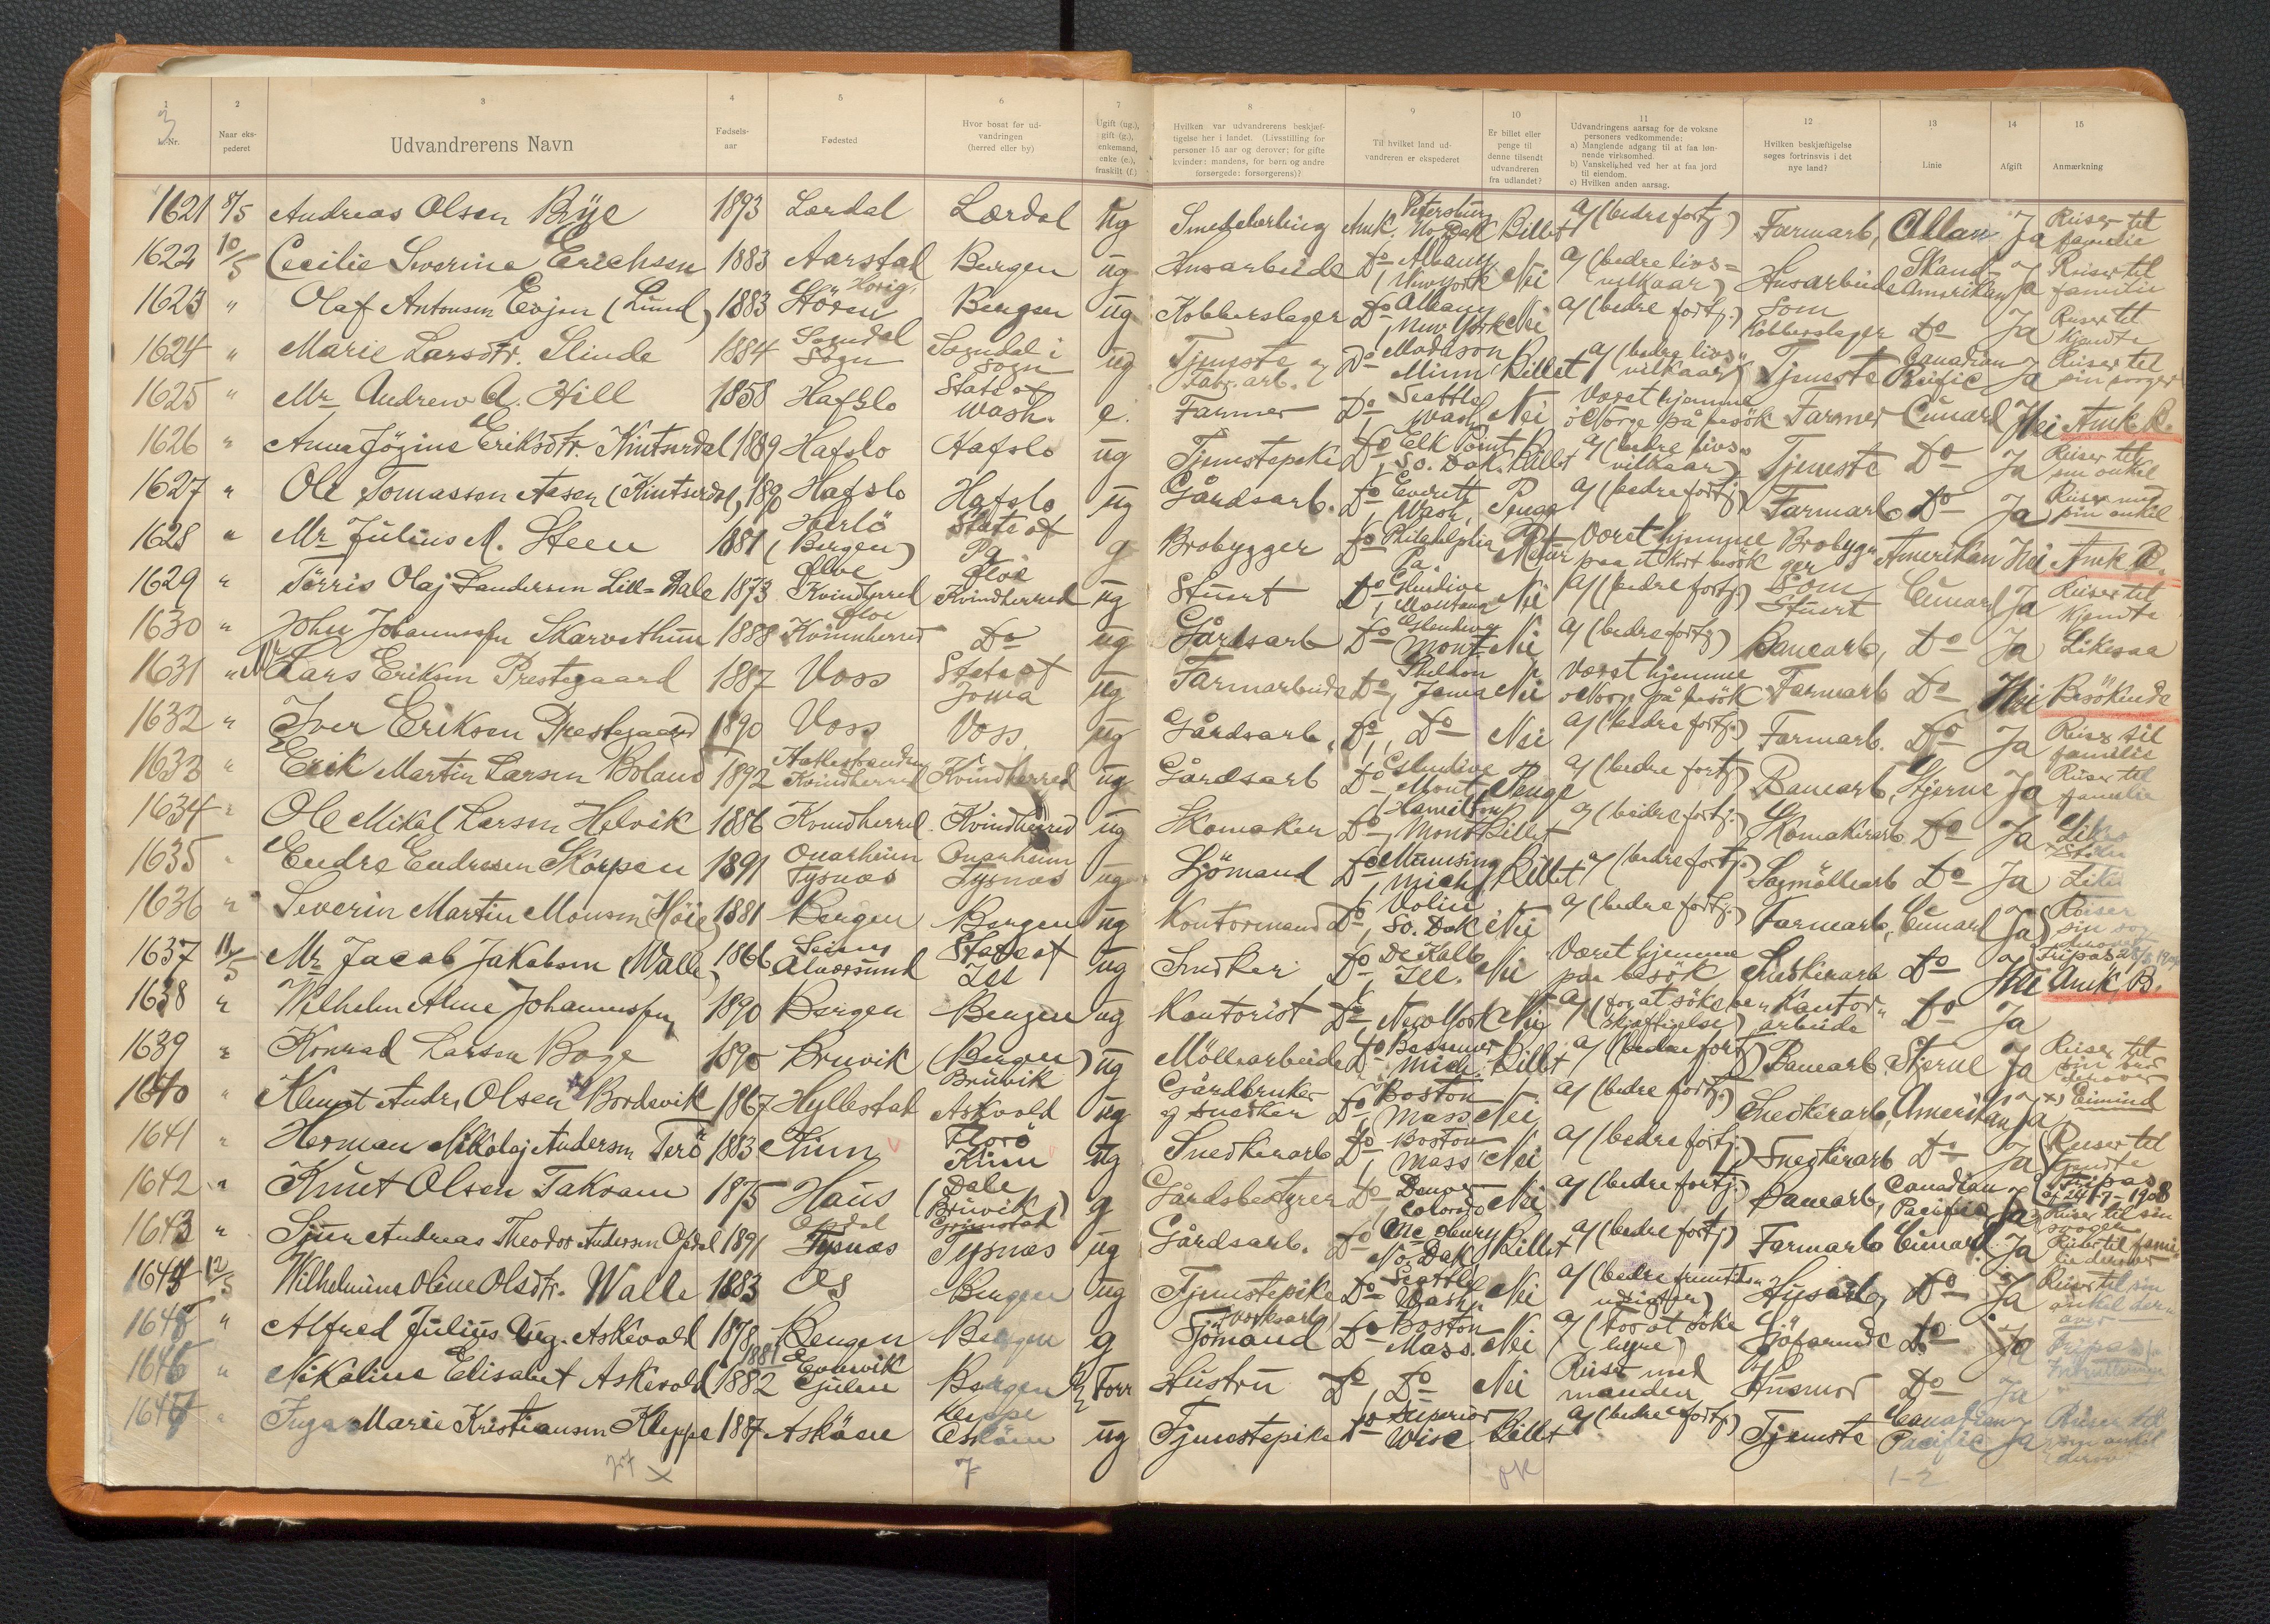 1 2 3 4 5 6 7 8 9 10 11 12 13 14 15
L. Nr. Naar eks-pederet Udvandrerens Navn Fødsels-aar Fødested Hvor bosat før ud-vandringen (herred eller by) Ugift (ug.), gift (g.), enkemand, enke (e.), fraskilt (f.) Hvilken var udvandrerens beskjæf-tigelse her i landet. (Livsstilling for personer 15 aar og derover; for gifte kvinder: mandens, for børn og andre forsørgede: forsørgerens)? Til hvilket land ud-vandreren er ekspederet Er billet eller penge til denne tilsendt udvandreren fra udlandet? Udvandringens aarsag for de voksne personers vedkommende: a) Manglende adgang til at faa løn-nende virksomhed. b) Vanskelighed ved her at faa jord til eiendom. c) Hvilken anden aarsag. Hvilken beskjæftigelse søges fortrinsvis i det nye land? Linie Afgift Anmerkning
1621 8/5 Andreas Olsen Brÿe 1893 Lærdal Lærdal ug Smedelærling Amk. Petersburg No. Dak Billet a/ (bedre fortj.) Farmarb, Allan Ja Reiser til familie
1622 10/5 Cecilie Severine Erichsen 1883 Aarstad Bergen ug Husarbeide Do, Albany New York Nei a/ (bedre livs= vilkaar) Husarbeide Skand-Amerikan Ja Reiser til familie
1623 " Olaf Antonsen Evjen (Lund) 1883 Horig, Stören Bergen ug Kobberslager Do, Albany New York Nei a/ (bedre fortj.) Som Kobberslager Do Ja Reiser til kjendte
1624 " Marie Larsdtr. Slinde 1884 Sogndal Sogn Sogndal i Sogn ug Tjeneste og Fabr. arb. Do Maddson Minn Billet a/ (bedre livs" vilkaar) Tjeneste Canadian Pacific Ja Reiser til sin svoger
1625 " Mr Andrew A. Hill 1858 Hafslo State of Wash. e. Farmer Do, Seattle Wash, Nei Været hjemme i Norge på besök Farmer Cunard Nei Amk. B.
1626 " Anna Jözine Eriksdtr. Kintserdal 1889 Hafslo Hafslo ug Tjenestepike Do, Elk Point So. Dak. Billet a/ (bedre livs" vilkaar) Tjeneste Do Ja Reiser til sin onkel
1627 " Ole Tomassen Aasen (Kintserdal) 1890 Hafslo Hafslo ug Gårdsarb. Do, Everett Wash, Penge a/ (bedre fortj) Farmarb Do Ja Reiser med sin onkel
1628 " Mr Julius M. Steen 1881 Herlö (Bergen) State of Pa g Brobygger Do Philadelphia Pa. Retur Været hjemme paa et kort besök Brobygger Amerikan Nei Amk B.
1629 " Törris Olaj Sandersen Lill-Dale 1873 Ølve Kvindherred Ølve Kvindherred ug Stuert Do, Glendive Montana Nei a/ (bedre fortj) Som Stuert Cunard Ja Reiser til kjendte
1630 " John Johannessen Skarvethun 1888 Ølve Kvinnherred Do ug Gårdsarb Do, Glendive Mont Nei a/ (bedre fortj) Banearb, Do Ja Likesaa
1631 " Mr Lars Eriksen Prestegaard 1887 Voss State of Jowa ug Farmarbeide Do, Sheldon Jowa Nei Været hjemme i Norge på besök Farmarb Do Nei Besökende
1632 " Iver Eriksen Prestegaard 1890 Voss Voss ug Gårdsarb, Do, Do Nei a/ (bedre fortj.) Farmarb. Do Ja Reiser til familie
1633 " Erik Martin Larsen Boland 1892 Kvindherred Kvindherred ug Gårdsarb Do Glendive Mont, Penge a/ (bedre fortj) Banearb, Stjerne Ja Reiser til familie
1634 " Ole Mikal Larsen Helvik 1886 Kvindherred Kvindherred ug Skomaker Do, Hamilton Mont Billet a/ (bedre fortj.) Skomakerarb Do Ja
1635 " Endre Endresen Skorpen 1891 Onarheim Tysnæs Onarheim Tysnæs ug Sjömand Do, Munising Mich, Billet a/ (bedre fortj.) Sagmöllearb Do Ja
1636 " Severin Martin Monsen Höie 1881 Bergen Bergen ug Kontormand Do, Volin So. Dak Nei a/ (bedre fortj.) Farmarb, Cunard Ja Reiser
1637 11/5 Mr Jacob Jakobsen (Walle) 1866 Seim Alversund State of Ill ug Snedker Do De Kalb Ill. Nei Været hjemme paa besök Snedkerarb Do Nei Fripas Amk, B.
1638 " Wilhelm Alme Johannessen 1890 Bergen Bergen ug Kontorist Do, New York Nei a/ (for at söke be" skjæftigelse) Kontor" arbeide Do Ja
1639 " Konrad Larsen Boge 1890 Bruvik (Bergen) Bruvik ug Möllearbeide Do Bessemer Mich. Billet a/ (bedre fortj) Banearb. Stjerne Ja Reiser til sin bror derover
1640 " Klemet Andr. Olsen Bordevik 1867 Hyllestad Askvold ug Gårdbruker og snedker Do Boston Mass Nei a/ (bedre fortj.) Snedkerarb, Amerikan Ja x) Eimind
1641 " Herman Nikolaj Andersen Terö 1883 Kinn Florö Kinn ug Snedkerarb Do, Boston Mass Nei a/ (bedre fortj.) Snedkerarb Do Ja Reiser til kjendte
1642 " Knut Olsen Takvam 1875 Haus (Dale Bruvik) g Gårdsbestyrer Do Denver Colorado Nei a/ (bedre fortj.) Banearb, Canadian Pacific Ja Fripas af 24/7-1908
1643 " Sjur Andreas Theodor Andersen Opdal 1891 Opdal Tysnæs Grimstad Tysnæs ug Gårdsarb. Do Mc Henry No. Dak Billet a/ (bedre fortj) Farmarb Cunard Ja Reiser til sin svoger
1644 12/5 Wilhelmine Oline Olsdtr. Walle 1883 Os Bergen ug Tjenestepike Do Seattle Wash, Nei a/ (bedre fremtids" udsigter) Husarb, Do Ja Reiser til sin onkel der" over
1645 " Alfred Julius Aug. Askevold 1878 Bergen Bergen g (Verksarb) Sjömand Do Boston Mass. Nei a/ (For at söke hyre) Sjöfarende Do Ja Fripas
1646 " Nikoline Elisabet Askevold 1881 1882 Evenvik Gulen Bergen g Forr Hustru Do, Do Nei Reiser med manden Husmor Do Ja
1647 " Inga Marie Kristiansen Kleppe 1887 Asköen Kleppe Esköen ug Tjenestepike Do Superior Wisc Billet a/ (bedre fortj.) Tjeneste Canadian Pacific Ja Reiser til sin onkel derover
7 OK 1-2